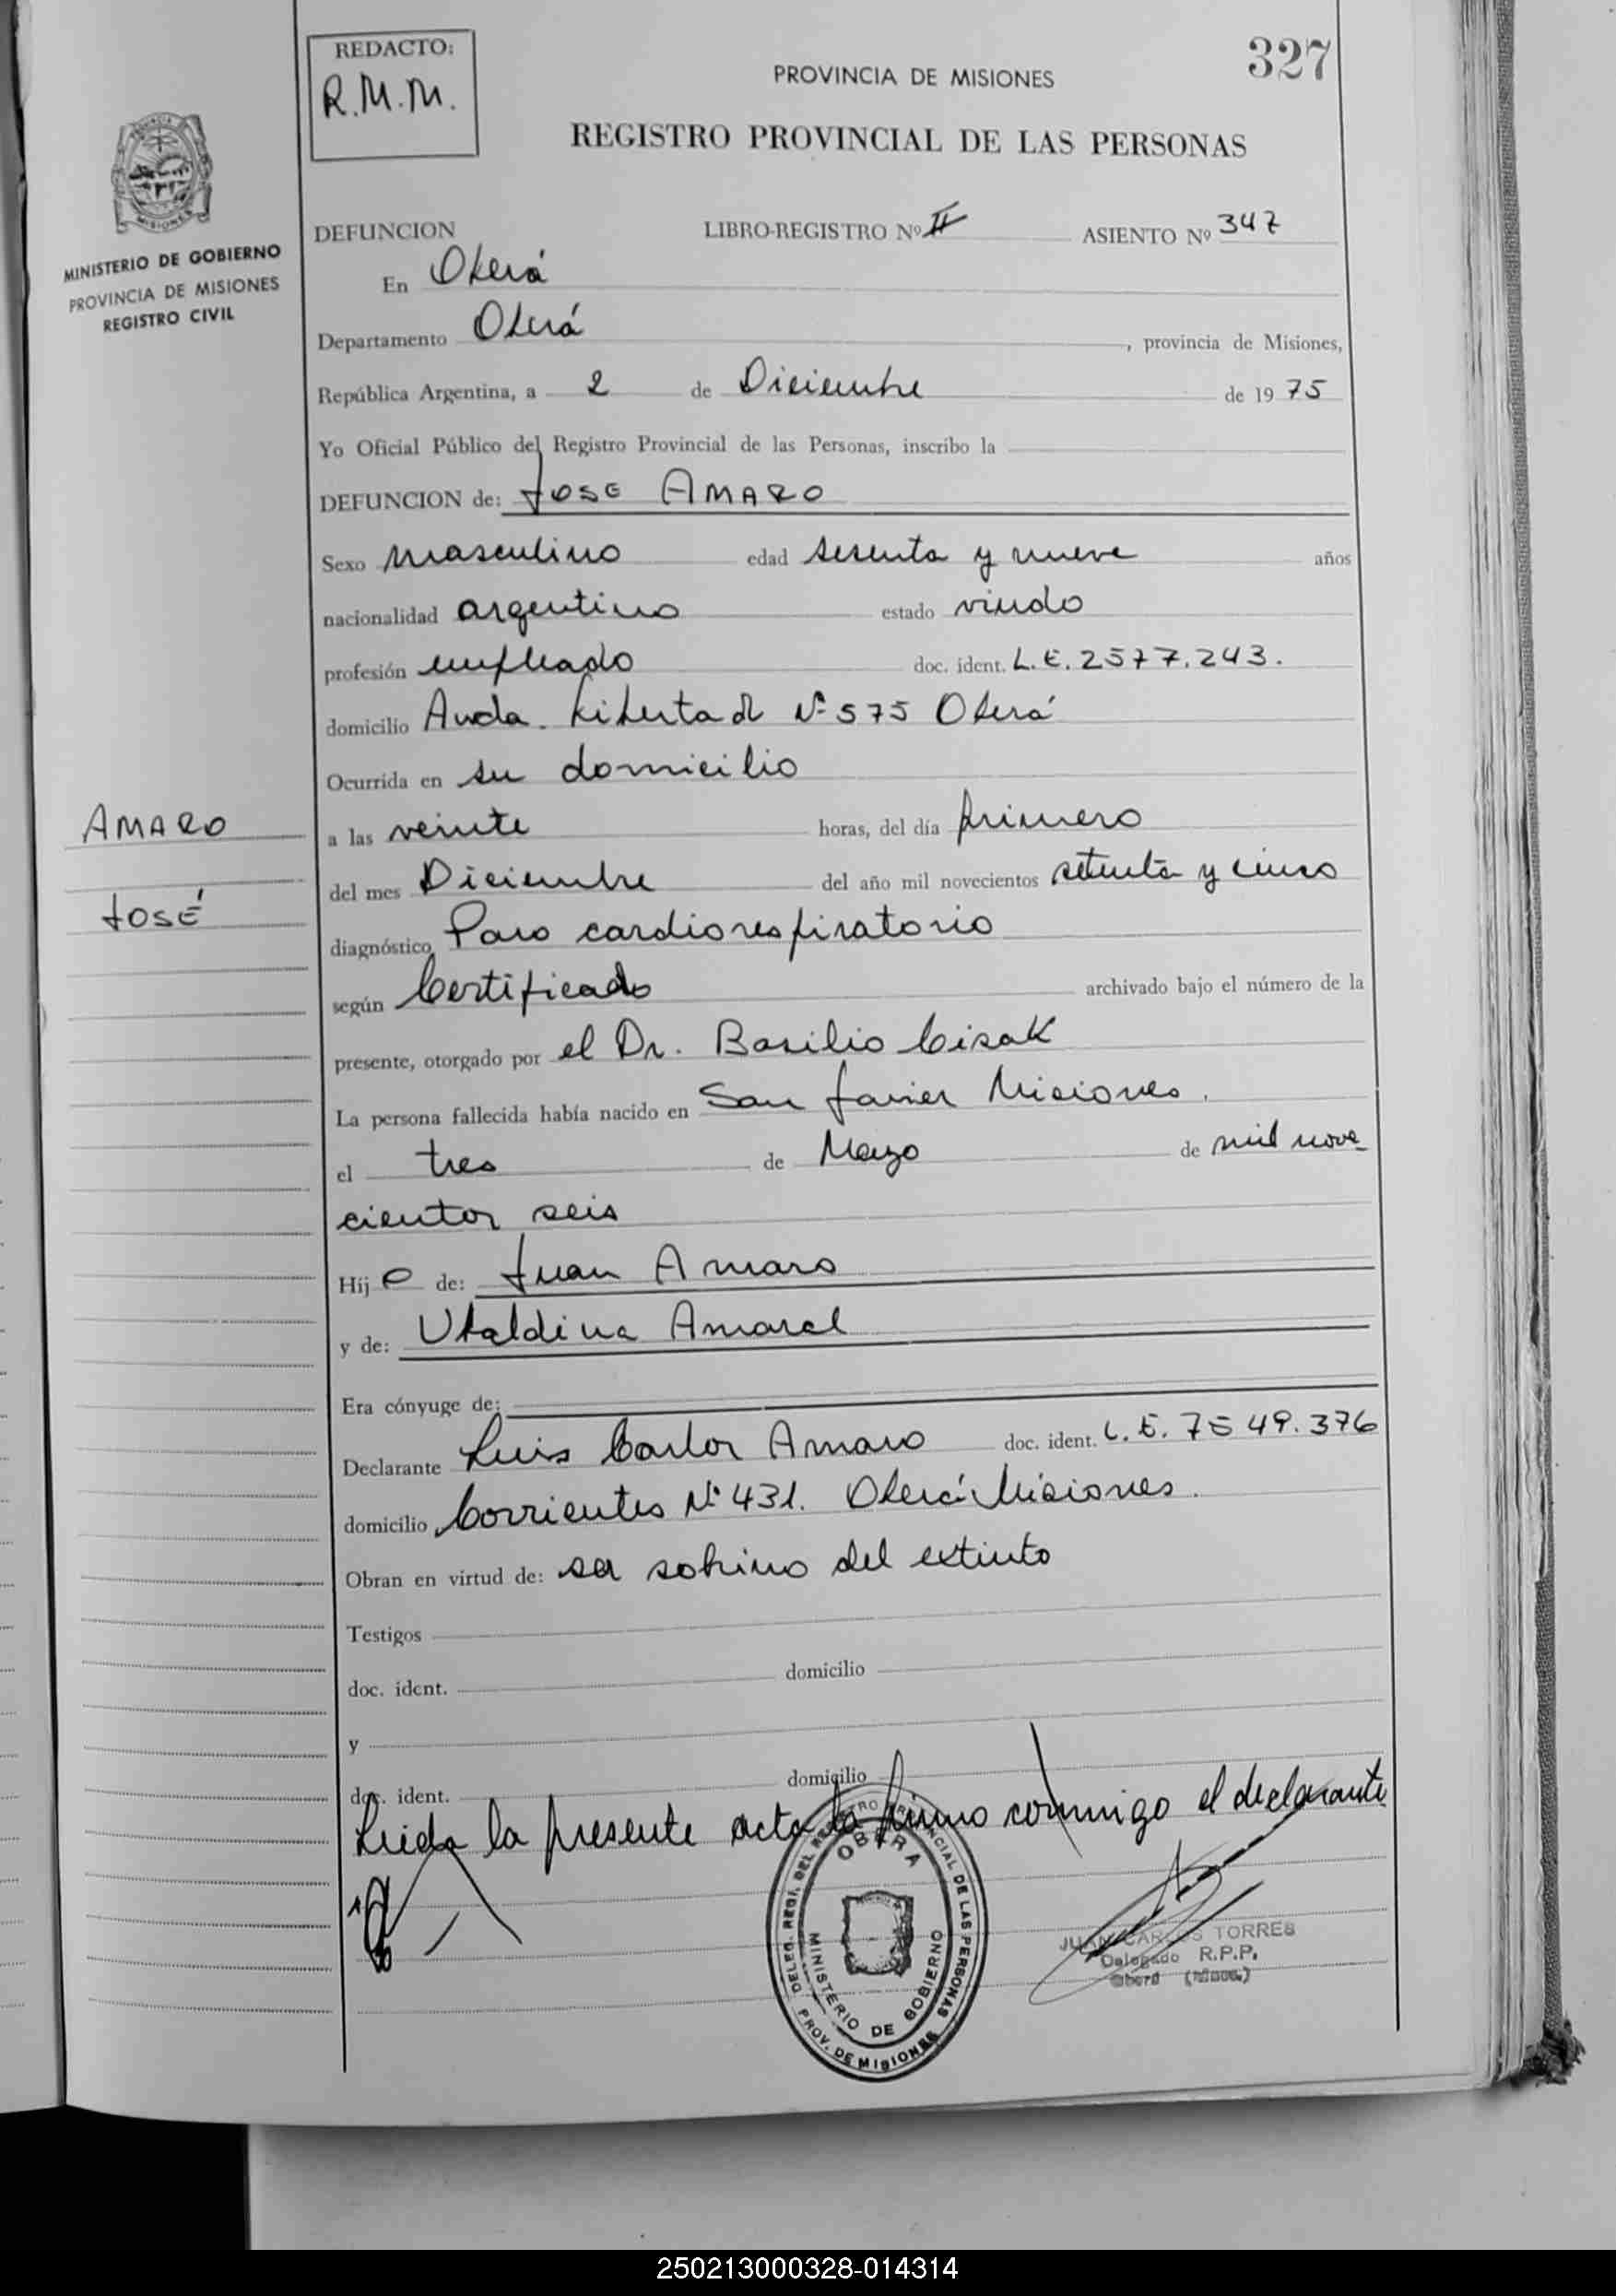 REDACTO:
R.M.M.
327
PROVINCIA DE MISIONES
REGISTRO PROVINCIAL DE LAS PERSONAS
MINISTERIO DE GOBIERNO
PROVINCIA DE MISIONES
REGISTRO CIVIL
DEFUNCION LIBRO-REGISTRO Nº II ASIENTO Nº 347
En Oberá
Departamento Oberá, provincia de Misiones,
República Argentina, a 2 de Diciembre de 1975
Yo Oficial Público del Registro Provincial de las Personas, inscribo la
DEFUNCION de: JOSE AMARO
Sexo masculino edad sesenta y nueve años
nacionalidad argentino estado viudo
profesión empleado doc. ident. L.E. 2577.243.
domicilio Avda. Libertad Nº 575 Oberá
Ocurrida en su domicilio
AMARO
a las veinte horas, del día primero
del mes Diciembre del año mil novecientos setenta y cinco
JOSÉ
diagnóstico Paro cardiorespiratorio
según Certificado archivado bajo el número de la
presente, otorgado por el Dr. Basilio Cisak
La persona fallecida había nacido en San Javier Misiones.
el tres de de mil nove
cientos seis
Hijo de: Juan Amaro
y de: Ubaldina Amaral
Era cónyuge de:
Declarante Luis Carlos Amaro doc. ident. L.E. 7549.376
domicilio Corrientes Nº 431. Oberá Misiones.
Obran en virtud de: ser sobrino del extinto
Testigos
doc. ident. domicilio
y
doc. ident. domicilio
Leida la presente acta la firmo conmigo el declarante
DELEG. REGI. DEL REGISTRO PROVINCIAL DE LAS PERSONAS
OBERA
MINISTERIO DE GOBIERNO
PROV. DE MISIONES
JUAN CARLOS TORRES
Delegado R.P.P.
Oberá (Mnes.)
250213000328-014314